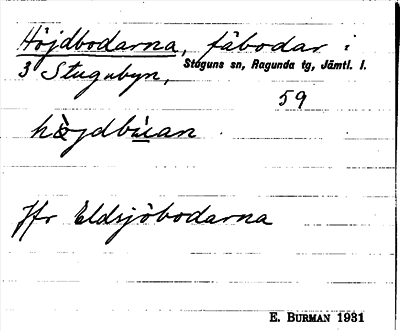 Höjdbodarna, fäbodar i
3 Stugubyn, Stuguns sn, Ragunda tg, Jämtl. l.
59
hö̀jdbu̇an
Jfr Eldsjöbodarna
E. BURMAN 1931